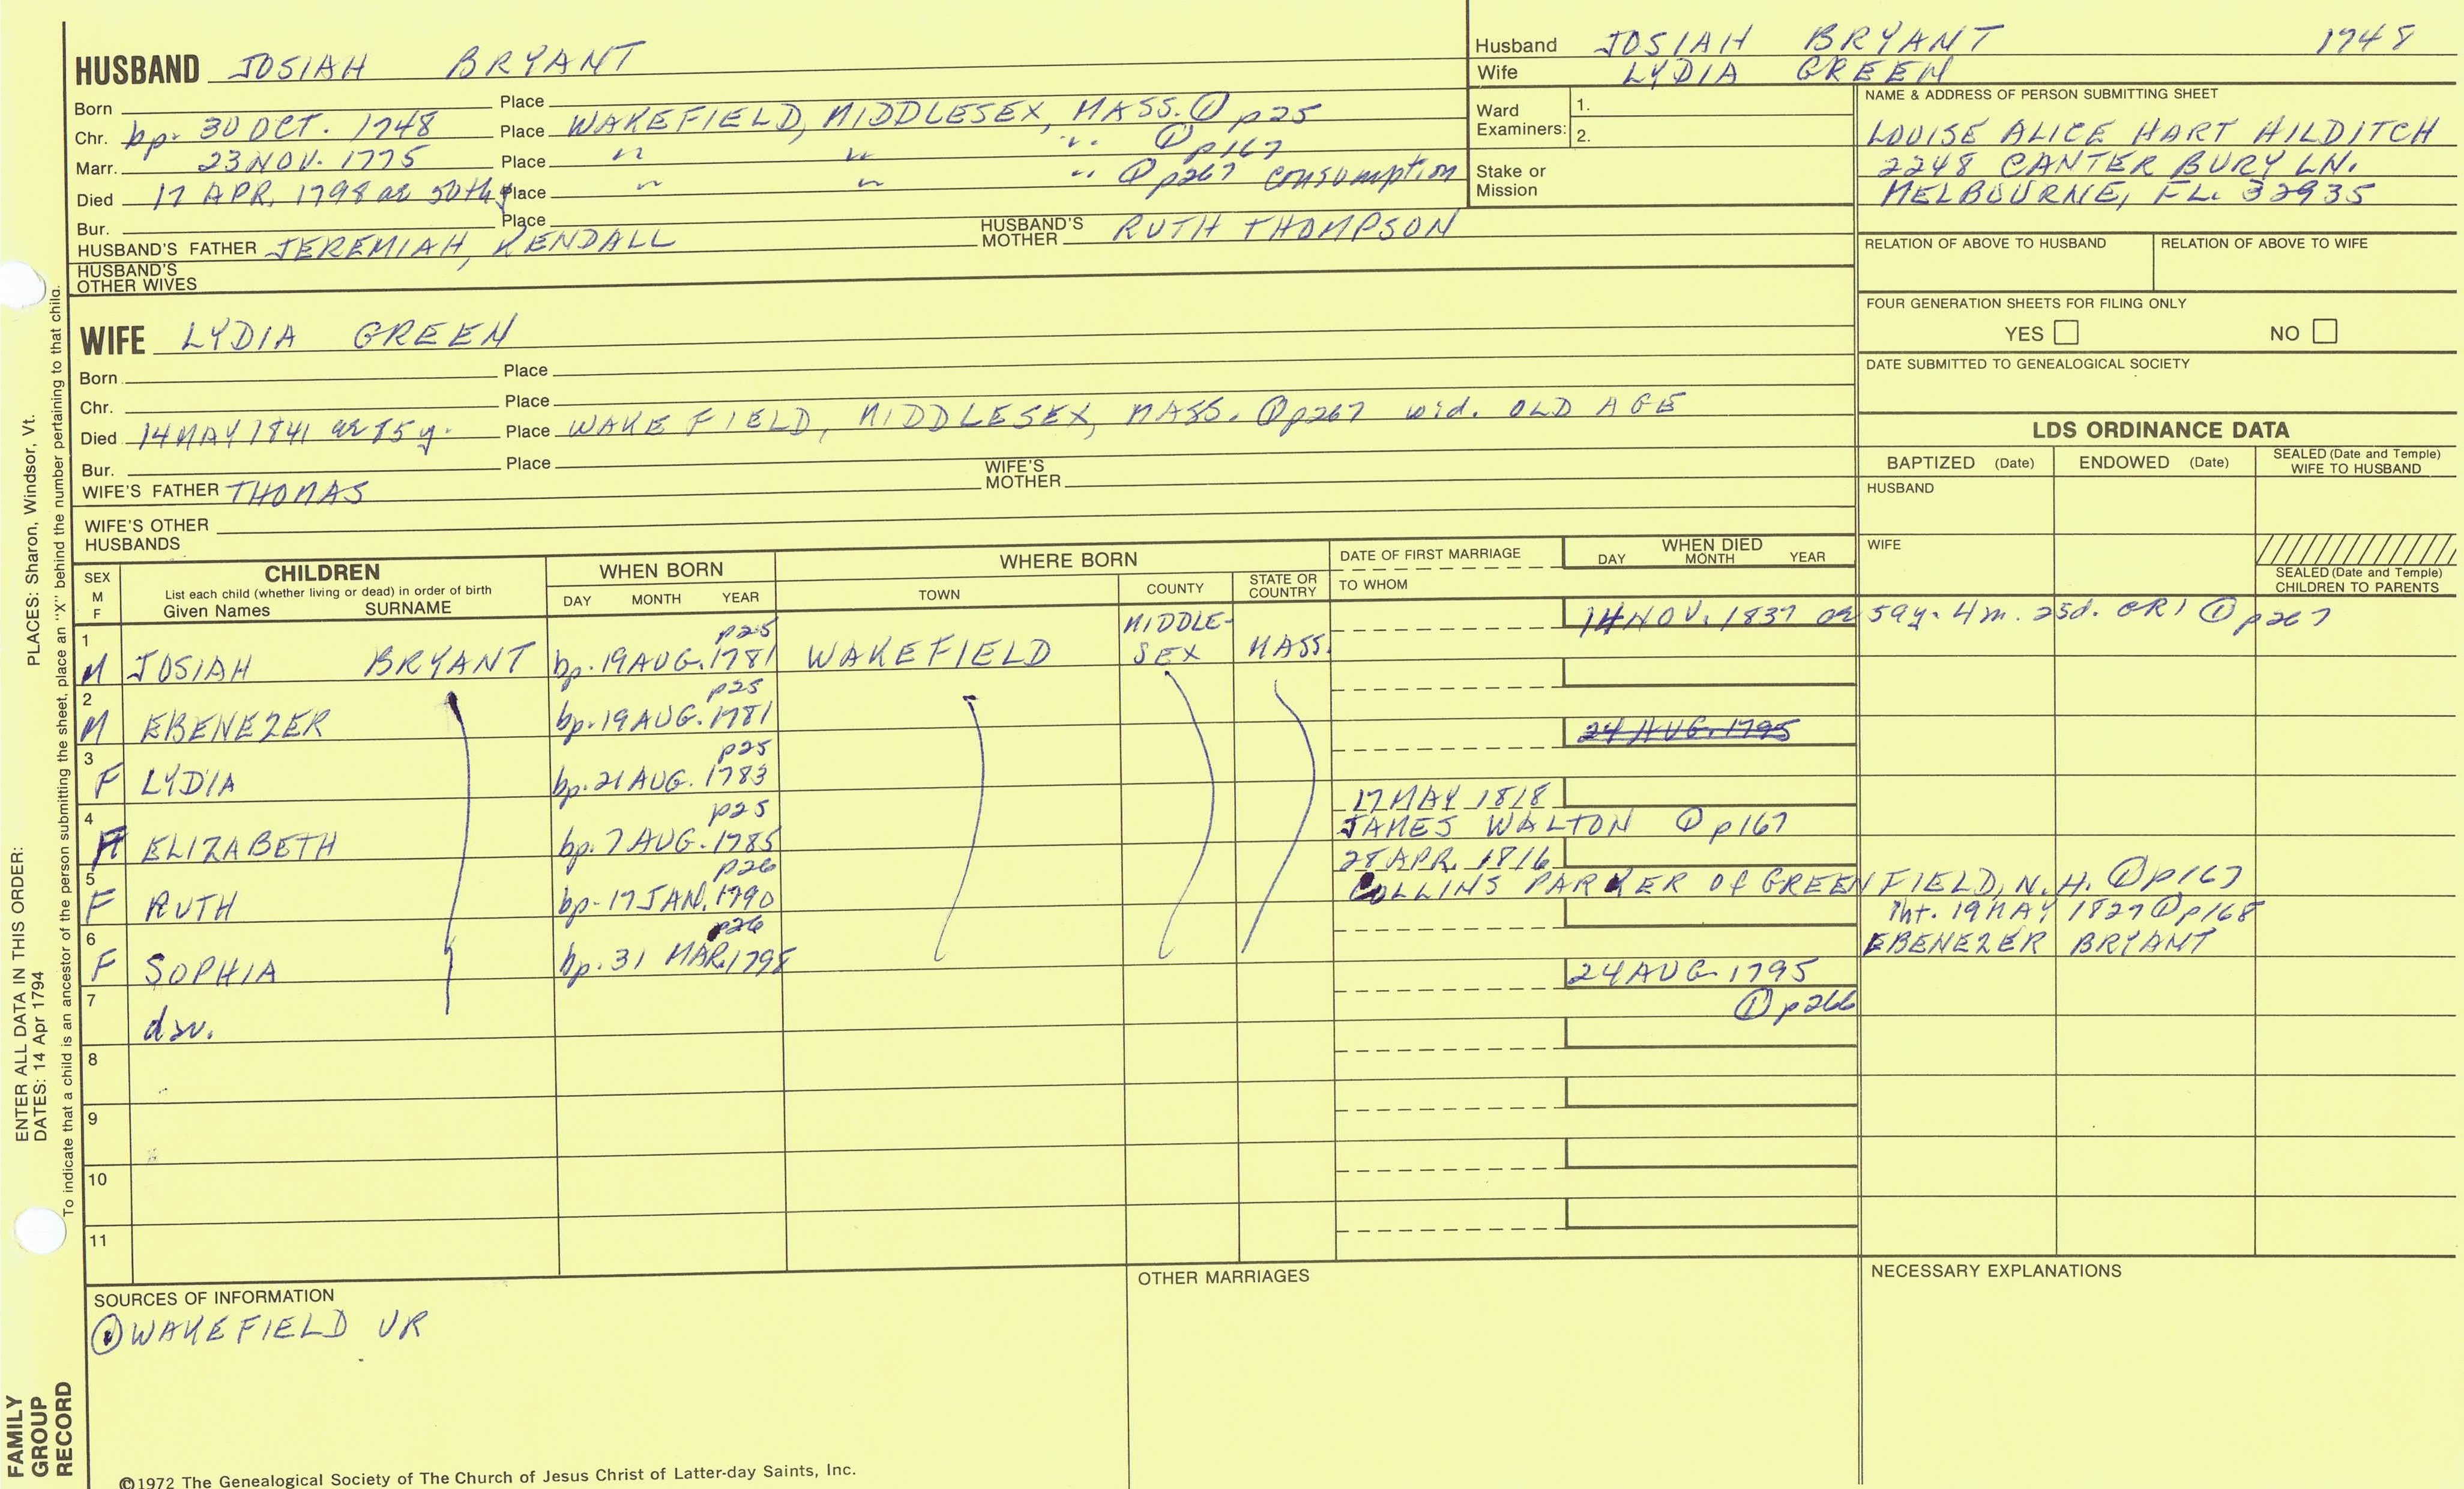 HUSBAND JOSIAH BRYANT
Born Place
Chr. bp. 30 OCT. 1748 Place WAKEFIELD, MIDDLESEX, MASS. ① p25
Marr. 23 NOV. 1775 Place " " " ① p167
Died 17 APR. 1798 ae 50th y Place " " " ① p267 consumption
Bur. Place
HUSBAND'S FATHER JEREMIAH, KENDALL HUSBAND'S MOTHER RUTH THOMPSON
HUSBAND'S OTHER WIVES
Husband JOSIAH BRYANT 1748
Wife LYDIA GREEN
Ward Examiners: 1.
2.
Stake or Mission
NAME & ADDRESS OF PERSON SUBMITTING SHEET
LOUISE ALICE HART HILDITCH
2248 CANTER BURY LN.
MELBOURNE, FL. 32935
RELATION OF ABOVE TO HUSBAND RELATION OF ABOVE TO WIFE
FOUR GENERATION SHEETS FOR FILING ONLY
YES NO
DATE SUBMITTED TO GENEALOGICAL SOCIETY
WIFE LYDIA GREEN
Born Place
Chr. Place
Died 14 MAY 1841 ae 85 y. Place WAKE FIELD, MIDDLESEX, MASS. ① p267 wid. OLD AGE
Bur. Place
WIFE'S FATHER THOMAS WIFE'S MOTHER
WIFE'S OTHER HUSBANDS
LDS ORDINANCE DATA
BAPTIZED (Date) ENDOWED (Date) SEALED (Date and Temple) WIFE TO HUSBAND
HUSBAND
WIFE
SEALED (Date and Temple) CHILDREN TO PARENTS
SEX M F
CHILDREN
List each child (whether living or dead) in order of birth
Given Names SURNAME
WHEN BORN
DAY MONTH YEAR
WHERE BORN
TOWN COUNTY STATE OR COUNTRY
DATE OF FIRST MARRIAGE
TO WHOM
WHEN DIED
DAY MONTH YEAR
1 p25 MIDDLE- 14 NOV. 1837 ae 59y. 4m. 25d. GR1 ① p267
M JOSIAH BRYANT bp. 19 AUG. 1781 WAKEFIELD SEX MASS.
2 p25
M EBENEZER bp. 19 AUG. 1781 24 AUG. 1795
3 p25
F LYDIA bp. 21 AUG. 1783
4 p25 17 MAY 1818
F ELIZABETH bp. 7 AUG. 1785 JAMES WALTON ① p167
5 p26 28 APR. 1816
F RUTH bp. 17 JAN. 1790 COLLINS PARKER of GREENFIELD, N.H. ① p167
6 p26 Int. 19 MAY 1827 ① p168
F SOPHIA bp. 31 MAR. 1795 EBENEZER BRYANT
7 24 AUG. 1795
dau. ① p266
8
9
10
11
SOURCES OF INFORMATION
① WAKEFIELD VR
OTHER MARRIAGES
NECESSARY EXPLANATIONS
©1972 The Genealogical Society of The Church of Jesus Christ of Latter-day Saints, Inc.
ENTER ALL DATA IN THIS ORDER: PLACES: Sharon, Windsor, Vt.
DATES: 14 Apr 1794
To indicate that a child is an ancestor of the person submitting the sheet, place an "X" behind the number pertaining to that child.
FAMILY
GROUP
RECORD